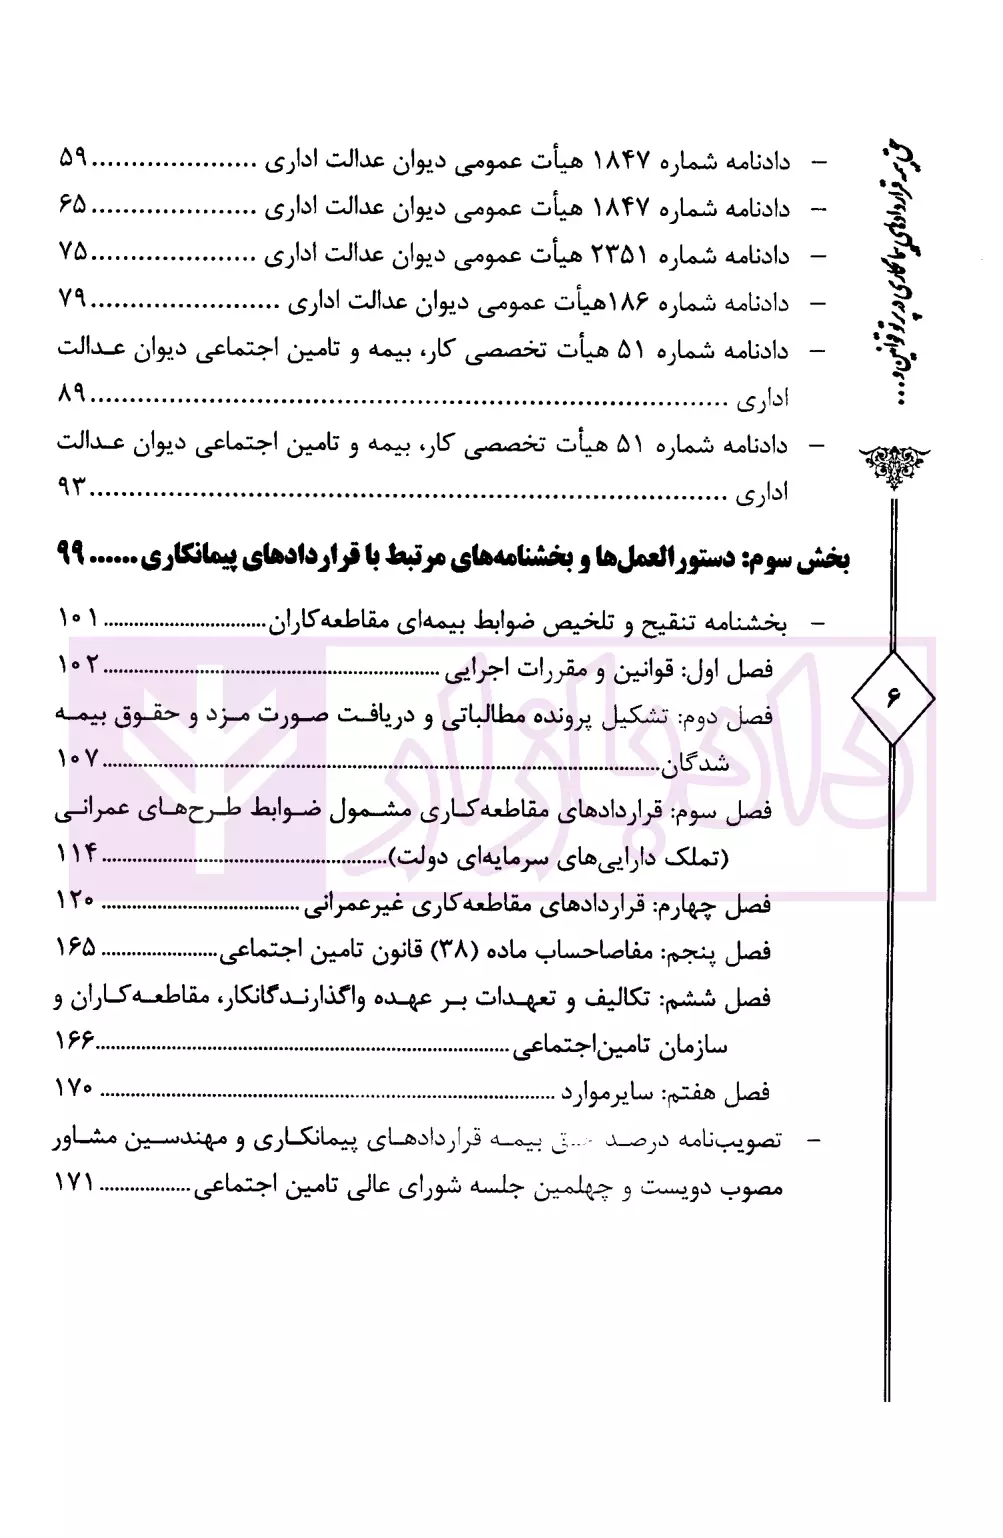 - دادنامه شماره ۱۸۴۷ هیأت عمومی دیوان عدالت اداری ..................... ۵۹
- دادنامه شماره ۱۸۴۷ هیأت عمومی دیوان عدالت اداری ..................... ۶۵
- دادنامه شماره ۲۳۵۱ هیأت عمومی دیوان عدالت اداری ..................... ۷۵
- دادنامه شماره ۱۸۶هیأت عمومی دیوان عدالت اداری ........................ ۷۹
- دادنامه شماره ۵۱ هیأت تخصصی کار، بیمه و تامین اجتماعی دیوان عدالت
اداری ................................................................................ ۸۹
- دادنامه شماره ۵۱ هیأت تخصصی کار، بیمه و تامین اجتماعی دیوان عدالت
اداری ................................................................................ ۹۳
بخش سوم: دستورالعمل‌ها و بخشنامه‌های مرتبط با قراردادهای پیمانکاری ...... ۹۹
- بخشنامه تنقیح و تلخیص ضوابط بیمه‌ای مقاطعه‌کاران ................................ ۱۰۱
فصل اول: قوانین و مقررات اجرایی ................................................................ ۱۰۲
فصل دوم: تشکیل پرونده مطالباتی و دریافت صورت مزد و حقوق بیمه
شدگان ................................................................................ ۱۰۷
فصل سوم: قراردادهای مقاطعه‌کاری مشمول ضوابط طرح‌های عمرانی
(تملک دارایی‌های سرمایه‌ای دولت) ........................................................ ۱۱۴
فصل چهارم: قراردادهای مقاطعه‌کاری غیرعمرانی ...................................... ۱۲۰
فصل پنجم: مفاصاحساب ماده (۳۸) قانون تامین اجتماعی ....................... ۱۶۵
فصل ششم: تکالیف و تعهدات بر عهده واگذارندگانکار، مقاطعه‌کاران و
سازمان تامین‌اجتماعی ................................................................ ۱۶۶
فصل هفتم: سایرموارد ................................................................ ۱۷۰
- تصویب‌نامه درصد بیمه قراردادهای پیمانکاری و مهندسین مشاور
مصوب دویست و چهلمین جلسه شورای عالی تامین اجتماعی .................. ۱۷۱
۶
دادبازار